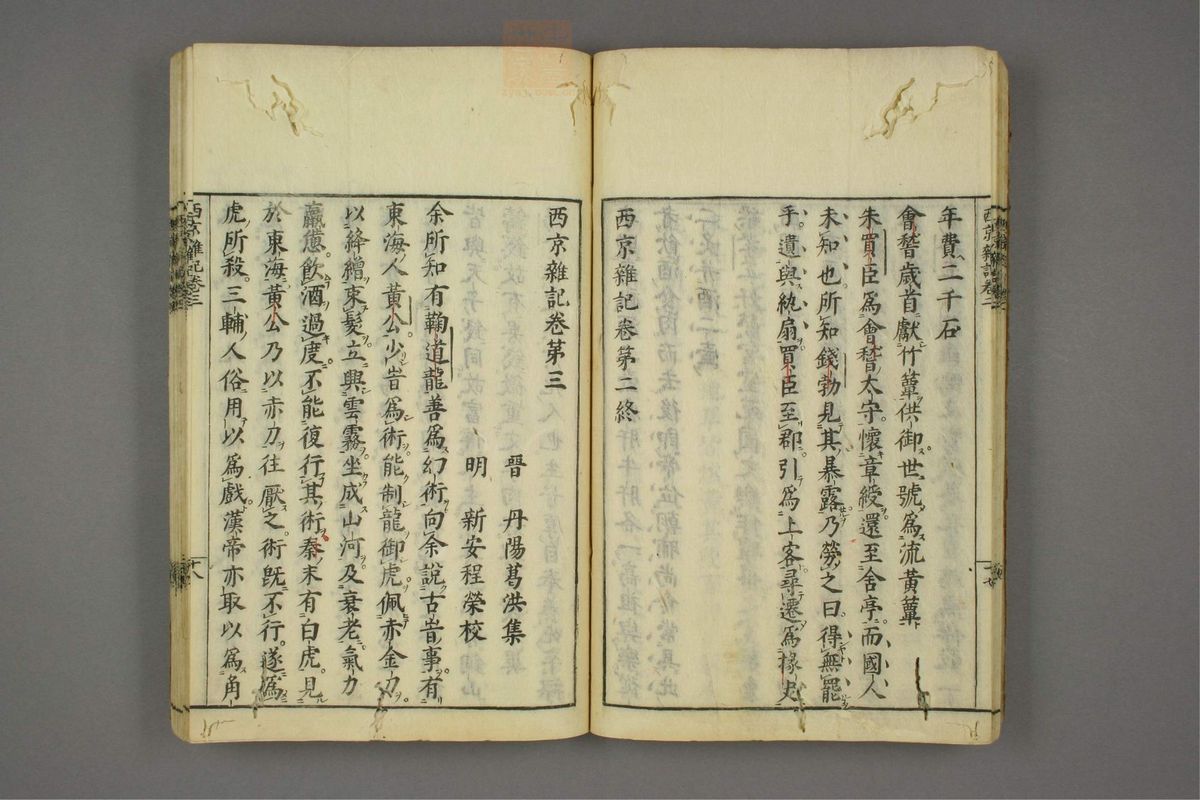 年費二千石
會䅲歲首獻竹簟供御世號爲流黃簟
朱買臣爲會䅲太守懷章綬還至舍亭而國人
未知也所知錢勃見其暴露乃勞之曰得無罷
乎遺與紈扇買臣至郡引爲上客尋遷爲掾史
西京雜記卷第二終
西京雜記卷第三
晉 丹陽葛洪集
明 新安程榮校
余所知有鞠道龍善爲幻術向余說古昔事有
東海人黃公少昔爲術能制龍御虎佩赤金刀
以絳繒束髮立興雲霧坐成山河及衰老氣力
羸憊飲酒過度不能復行其術秦末有白虎見
於東海黃公乃以赤刀往厭之術旣不行遂爲
虎所殺三輔人俗用以爲戲漢帝亦取以爲角
西京雜記卷三
十八